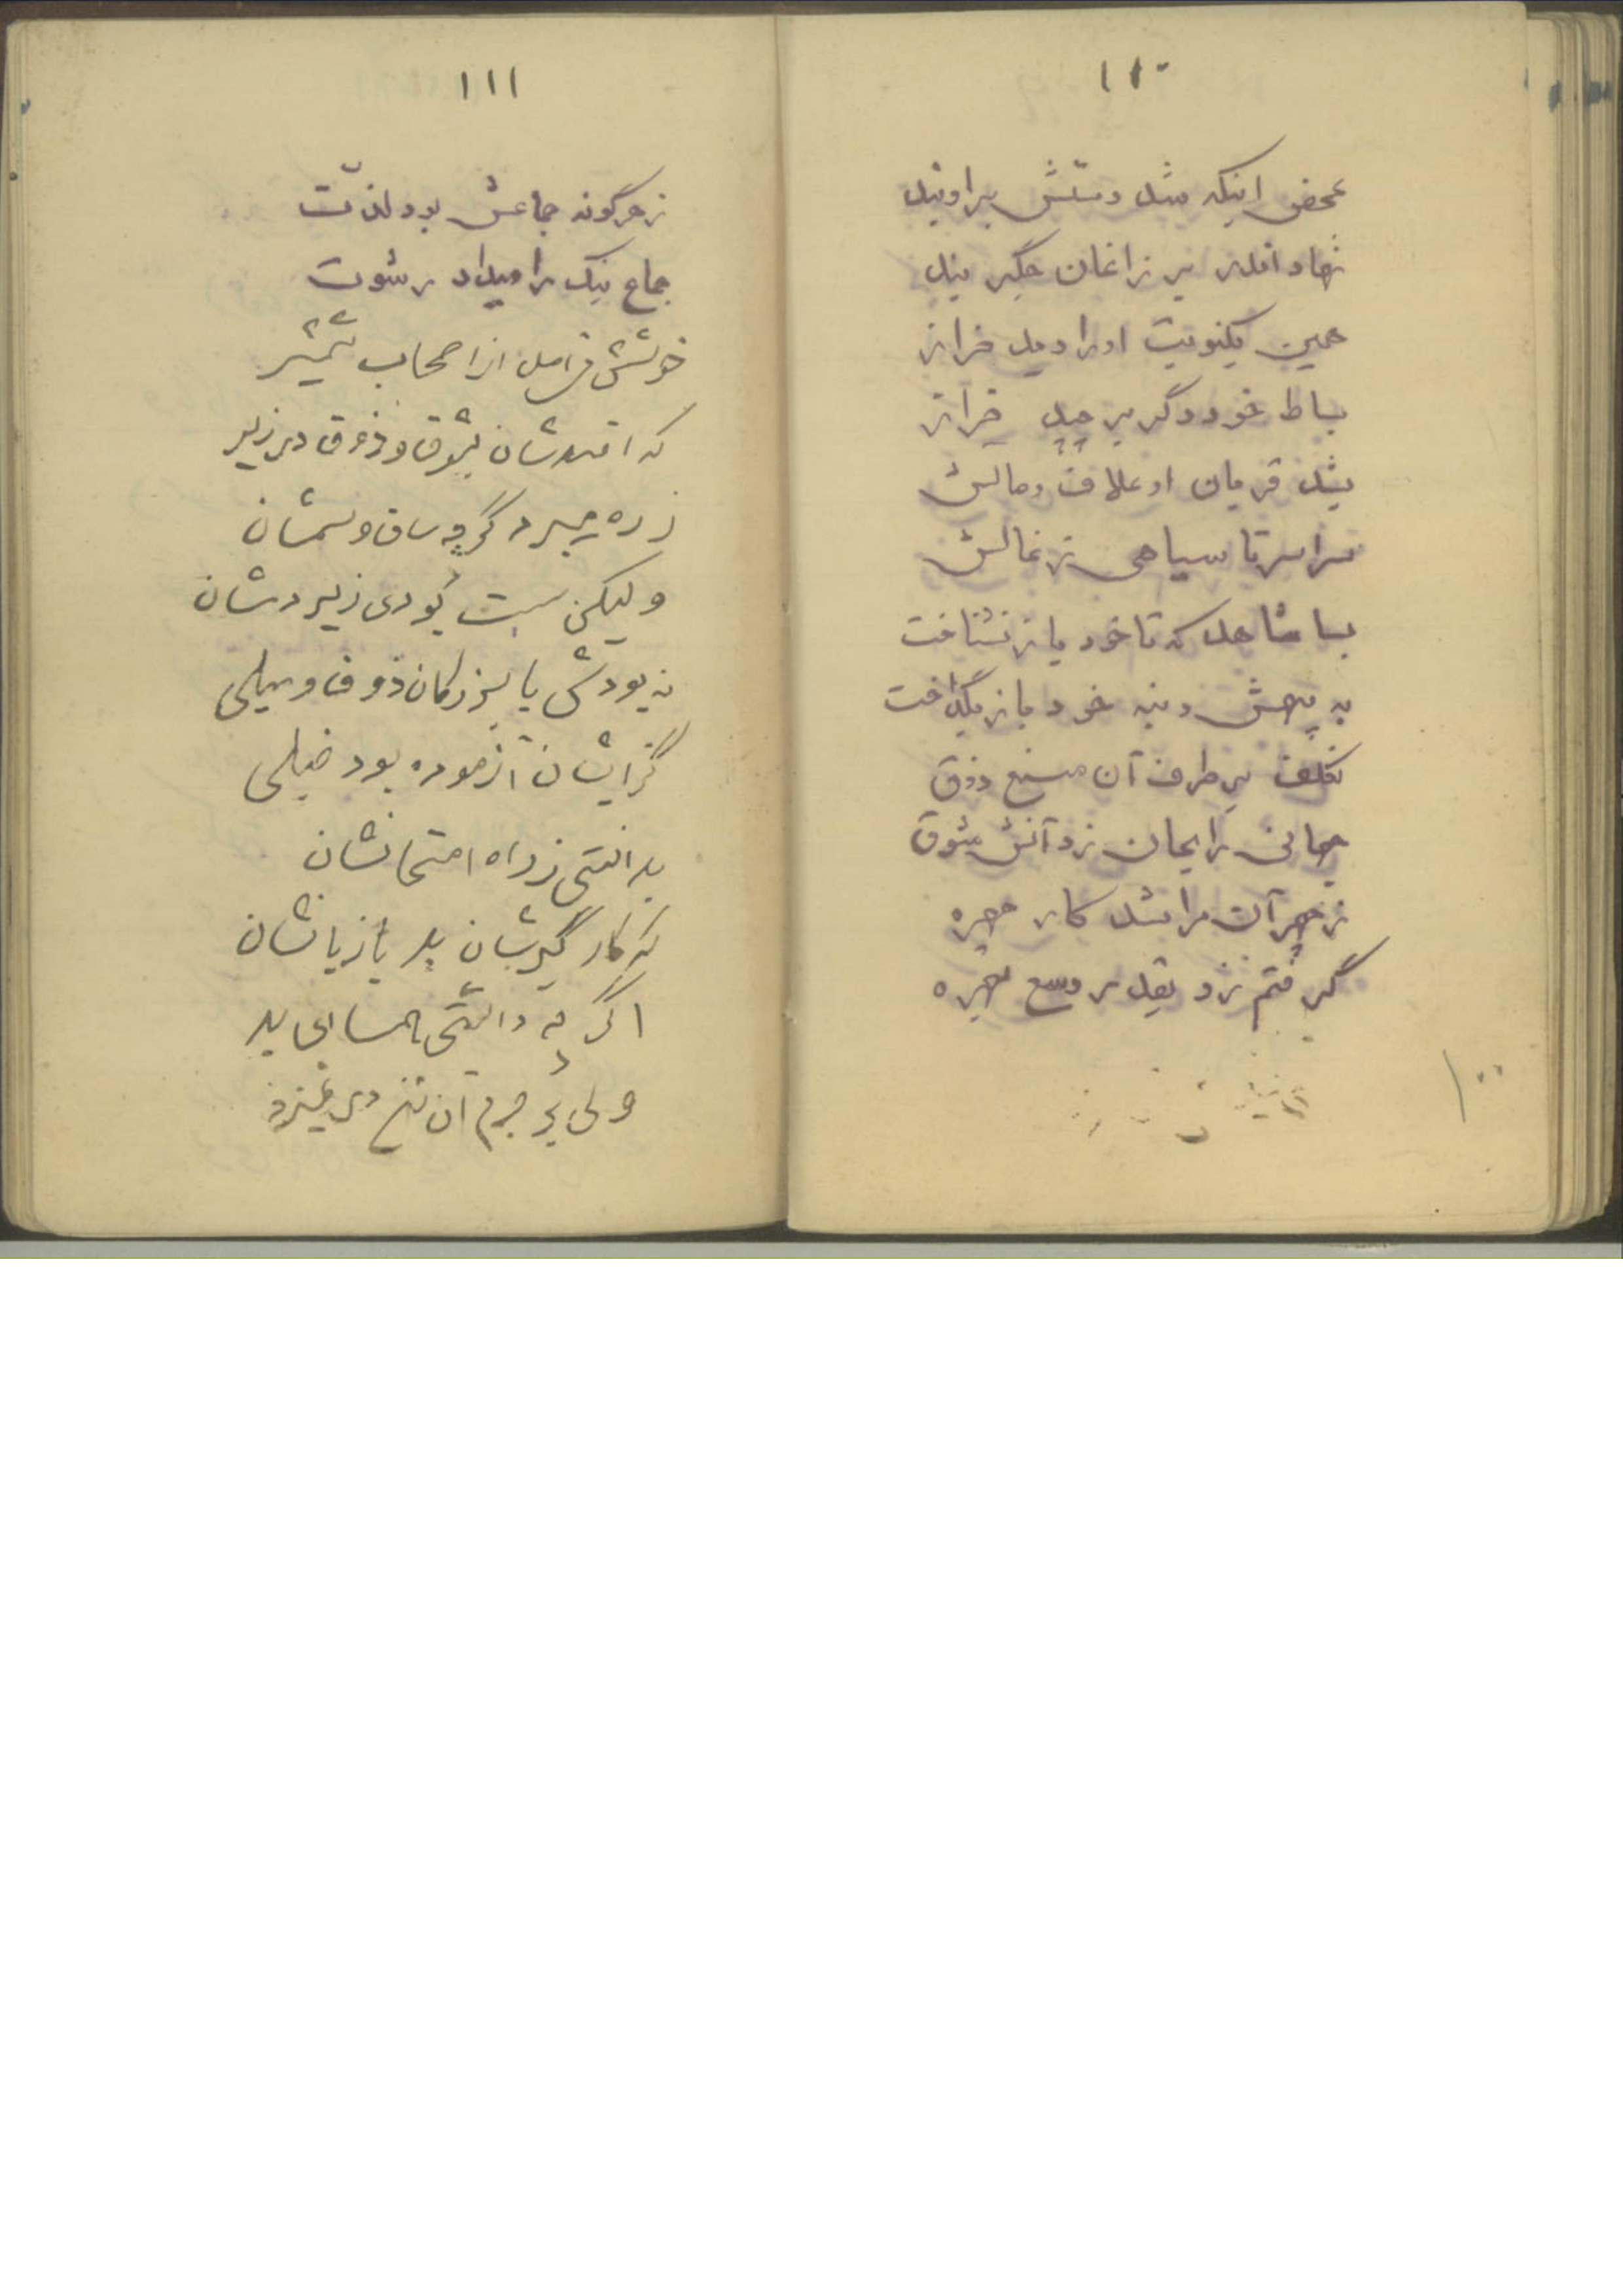 ۱۱۰
محض اینکه شد دستش بر او بند
نهاد اندر بر زاغان جگر بند
همین یکنوبت او را دید خراز
بساط خود دگر برچید خراز
بشد قربان او علاف و مالش
سراسر تا سیاهی زغالش
بسا شاهد که تا خود باز نشناخت
به پیهش دنبه خود باز بگداخت
تکلف بر طرف آن منبع ذوق
جهانی را بجان زد آتش شوق
ز هر آن مرا شد کار چهره
گرفتم زد بقدر وسع بهره
۱۰۰
۱۱۱
ز هرگونه جماعش بود لذت
جماع نیک را میداد رشوت
خوشش می‌آمد از اصحاب شمشیر
که افتدشان بشوق و ذوق در زیر
زره میبرد گرچه ساق و سمشان
ولیکن سست بودی زیر دمشان
نه بودش با بزرگان ذوق و میلی
گز ایشان آزموده بود خیلی
بدانستی ز راه امتحانشان
که کار گیرشان بد با زبانشان
اگر چه داشتی بد
ولی بر جرم آن در